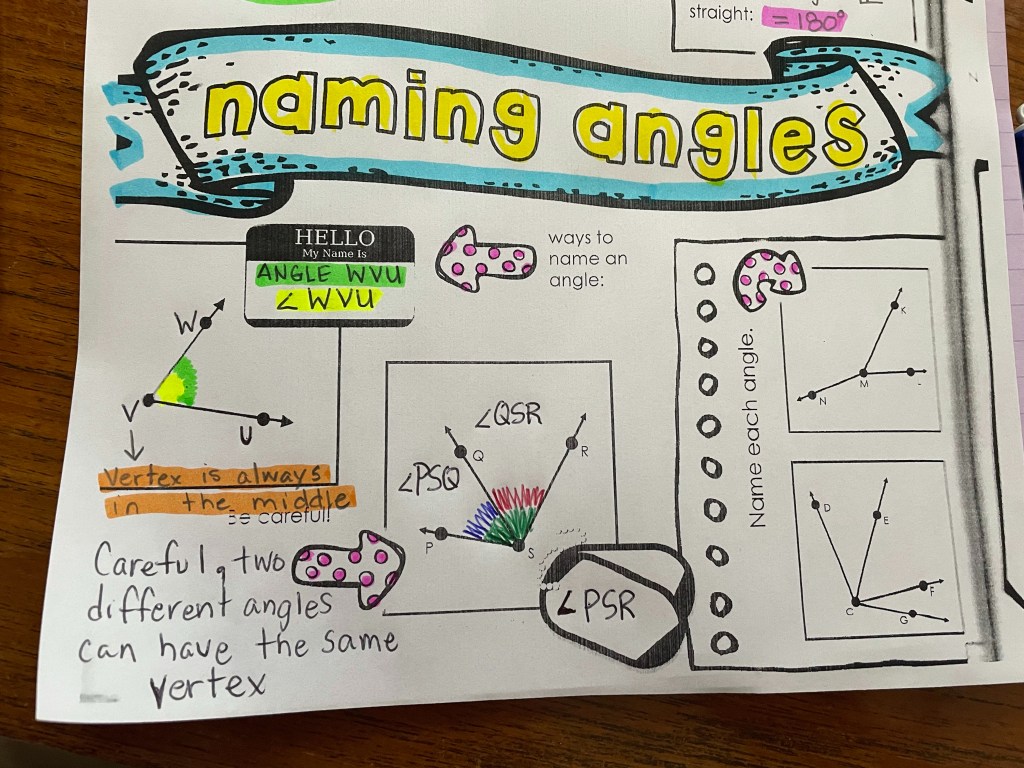 straight: = 180°
naming angles
HELLO
My Name Is
ANGLE WVU
∠ WVU
ways to
name an
angle:
W
V
U
Vertex is always
in the middle
Be careful!
Careful, two
different angles
can have the same
vertex
∠QSR
∠PSQ
Q
R
P
S
∠ PSR
Name each angle.
K
M
N
D
E
C
F
G